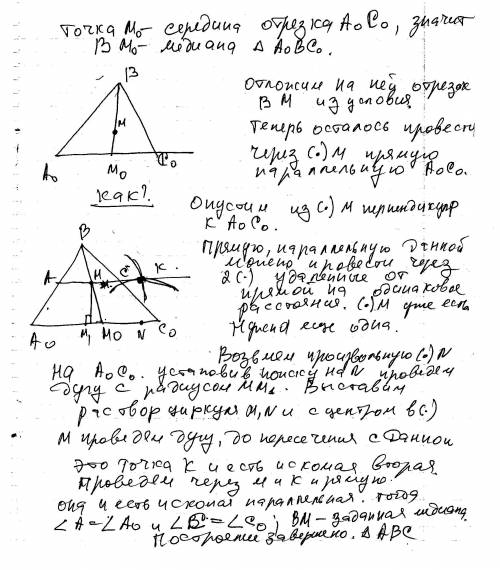 Точка M₀- середина отрезка A₀C₀, значит
BM₀- медиана △ A₀BC₀.
B
M
A₀ M₀ C₀
Отложим на ней отрезок
BM из условия.
Теперь осталось провести
через (·) M прямую
параллельную A₀C₀.
Как?
Опустим из (·) M перпендикуляр
к A₀C₀.
B
A M C K
A₀ M₁ M₀ N C₀
Прямую, параллельную данной
можно провести через
2 (·) удаленные от
прямой на одинаковое
расстояние. (·) M уже есть
Нужна еще одна.
Возьмем произвольную (·) N
на A₀C₀. установив ножку на N проведем
дугу с радиусом MM₁. Выставим
раствор циркуля M₁N и с центром в (·)
M проведем дугу, до пересечения с данной
это точка K и есть искомая вторая.
Проведем через M и K прямую.
она и есть искомая параллельная. тогда
∠A=∠A₀ и =∠C₀; BM- заданная медиана.
Построение завершено. △ABC